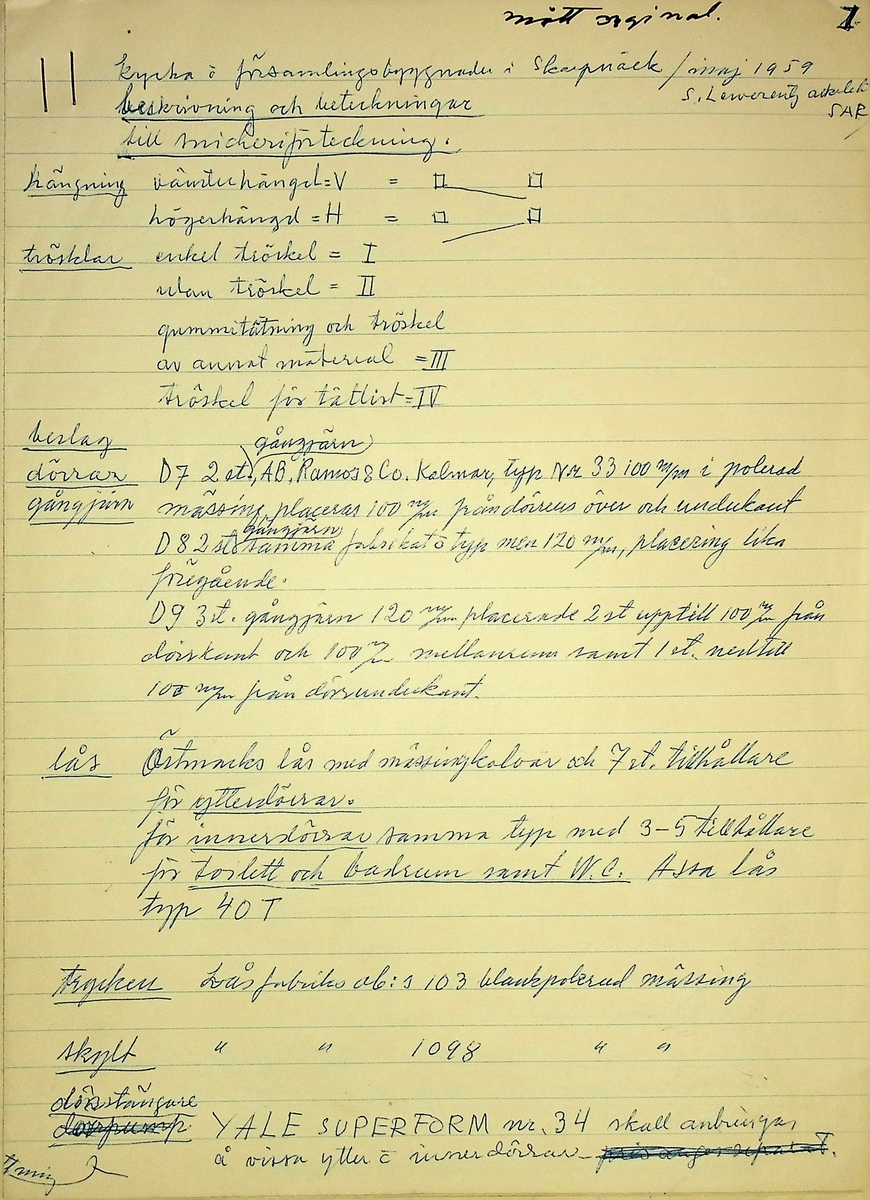 mått orginal. 1
kyrka o församlingsbyggnader i Skarpnäck / maj 1959
S. Lewerentz arkitekt
SAR
beskrivning och beteckningar
till snickeriförteckning.
hängning vänsterhängd = V =
högerhängd = H =
trösklar enkel tröskel = I
utan tröskel = II
gummitätning och tröskel
av annat material = III
tröskel för tätlist = IV
beslag
gångjärn
dörrar D7 2 st. AB. Ramos & Co. Kalmar, typ Nr 33 100 m/m i polerad
gångjärn mässing placeras 100 m/m från dörrens över och underkant
gångjärn
D8 2 st samma fabrikat o typ men 120 m/m, placering lika
föregående.
D9 3 st. gångjärn 120 m/m placerade 2 st upptill 100 m/m från
dörrkant och 100 m/m mellanrum samt 1 st. nedtill
100 m/m från dörrunderkant.
lås Östmarks lås med mässingkolvar och 7 st. tillhållare
för ytterdörrar.
för innerdörrar samma typ med 3-5 tillhållare
för toilett och badrum samt W.C. Assa lås
typ 40 T
trycken Låsfabriks ab:s 103 blankpolerad mässing
skylt " " 1098 " "
dörrstängare
dörrpump YALE SUPERFORM nr. 34 skall anbringas
å vissa ytter o innerdörrar - pris anges separat.